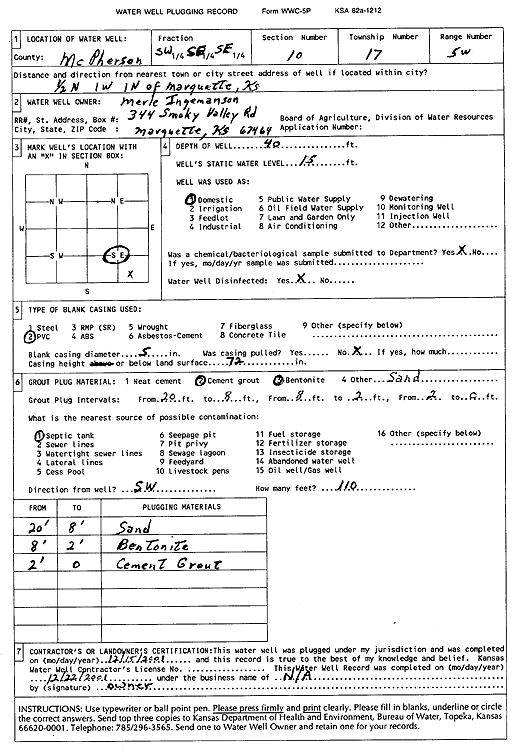 WATER WELL PLUGGING RECORD Form WWC-5P KSA 82a-1212
1 LOCATION OF WATER WELL: Fraction Section Number Township Number Range Number
County: McPherson SW 1/4 SE 1/4 SE 1/4 10 17 5W
Distance and direction from nearest town or city street address of well if located within city?
1/2 N 1W 1N of Marquette, Ks
2 WATER WELL OWNER: Merle Ingemanson
RR#, St. Address, Box #: 344 Smoky Valley Rd Board of Agriculture, Division of Water Resources
City, State, ZIP Code : Marquette, Ks 67464 Application Number:
3 MARK WELL'S LOCATION WITH AN "X" IN SECTION BOX:
N
N W N E
W E
S W S E
X
S
4 DEPTH OF WELL....40....ft.
WELL'S STATIC WATER LEVEL....15....ft.
WELL WAS USED AS:
1 Domestic 5 Public Water Supply 9 Dewatering
2 Irrigation 6 Oil Field Water Supply 10 Monitoring Well
3 Feedlot 7 Lawn and Garden Only 11 Injection Well
4 Industrial 8 Air Conditioning 12 Other....
Was a chemical/bacteriological sample submitted to Department? Yes X No....
If yes, mo/day/yr sample was submitted....
Water Well Disinfected: Yes X No....
5 TYPE OF BLANK CASING USED:
1 Steel 3 RMP (SR) 5 Wrought 7 Fiberglass 9 Other (specify below)
2 PVC 4 ABS 6 Asbestos-Cement 8 Concrete Tile
Blank casing diameter....5....in. Was casing pulled? Yes.... No. X If yes, how much....
Casing height above or below land surface....72....in.
6 GROUT PLUG MATERIAL: 1 Neat cement 2 Cement grout 3 Bentonite 4 Other Sand
Grout Plug Intervals: From 20 ft. to 8 ft., From 8 ft. to 2 ft., From 2 to 0 ft.
What is the nearest source of possible contamination:
1 Septic tank 6 Seepage pit 11 Fuel storage 16 Other (specify below)
2 Sewer lines 7 Pit privy 12 Fertilizer storage
3 Watertight sewer lines 8 Sewage lagoon 13 Insecticide storage
4 Lateral lines 9 Feedyard 14 Abandoned water well
5 Cess Pool 10 Livestock pens 15 Oil well/Gas well
Direction from well? SW How many feet? 110
FROM TO PLUGGING MATERIALS
20' 8' Sand
8' 2' Bentonite
2' 0 Cement Grout
7 CONTRACTOR'S OR LANDOWNER'S CERTIFICATION: This water well was plugged under my jurisdiction and was completed
on (mo/day/year) 12/15/2001 and this record is true to the best of my knowledge and belief. Kansas
Water Well Contractor's License No. .... This Water Well Record was completed on (mo/day/year)
12/22/2001 under the business name of N/A
by (signature) owner
INSTRUCTIONS: Use typewriter or ball point pen. Please press firmly and print clearly. Please fill in blanks, underline or circle
the correct answers. Send top three copies to Kansas Department of Health and Environment, Bureau of Water, Topeka, Kansas
66620-0001. Telephone: 785/296-3565. Send one to Water Well Owner and retain one for your records.